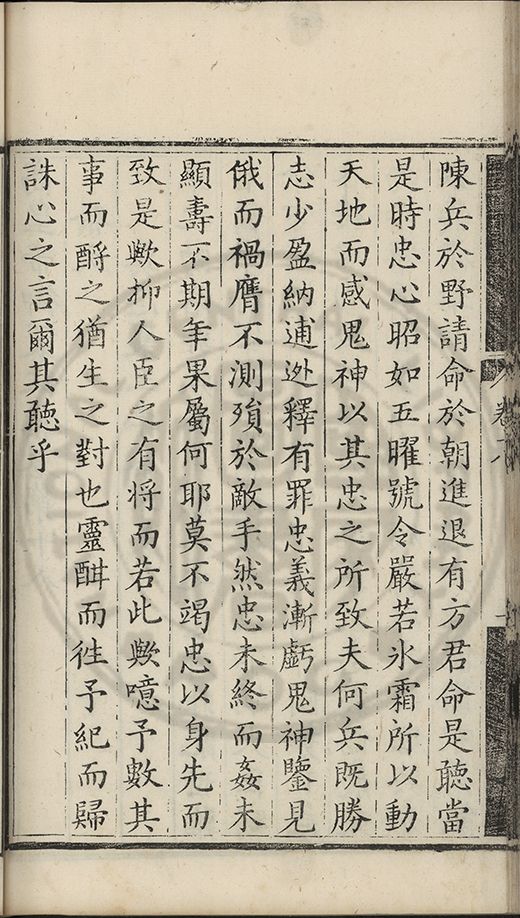 陳兵於野請命於朝進退有方君命是聽當
是時忠心昭如五曜號令嚴若氷霜所以動
天地而感鬼神以其忠之所致夫何兵既勝
志少盈納逋迯釋有罪忠義漸虧鬼神鑒見
俄而禍膺不測殞於敵手然忠未終而姦未
顯壽不期年果屬何耶莫不竭忠以身先而
致是歟抑人臣之有将而若此歟噫予數其
事而酹之猶生之對也靈酣而徃予紀而歸
誅心之言爾其聽乎